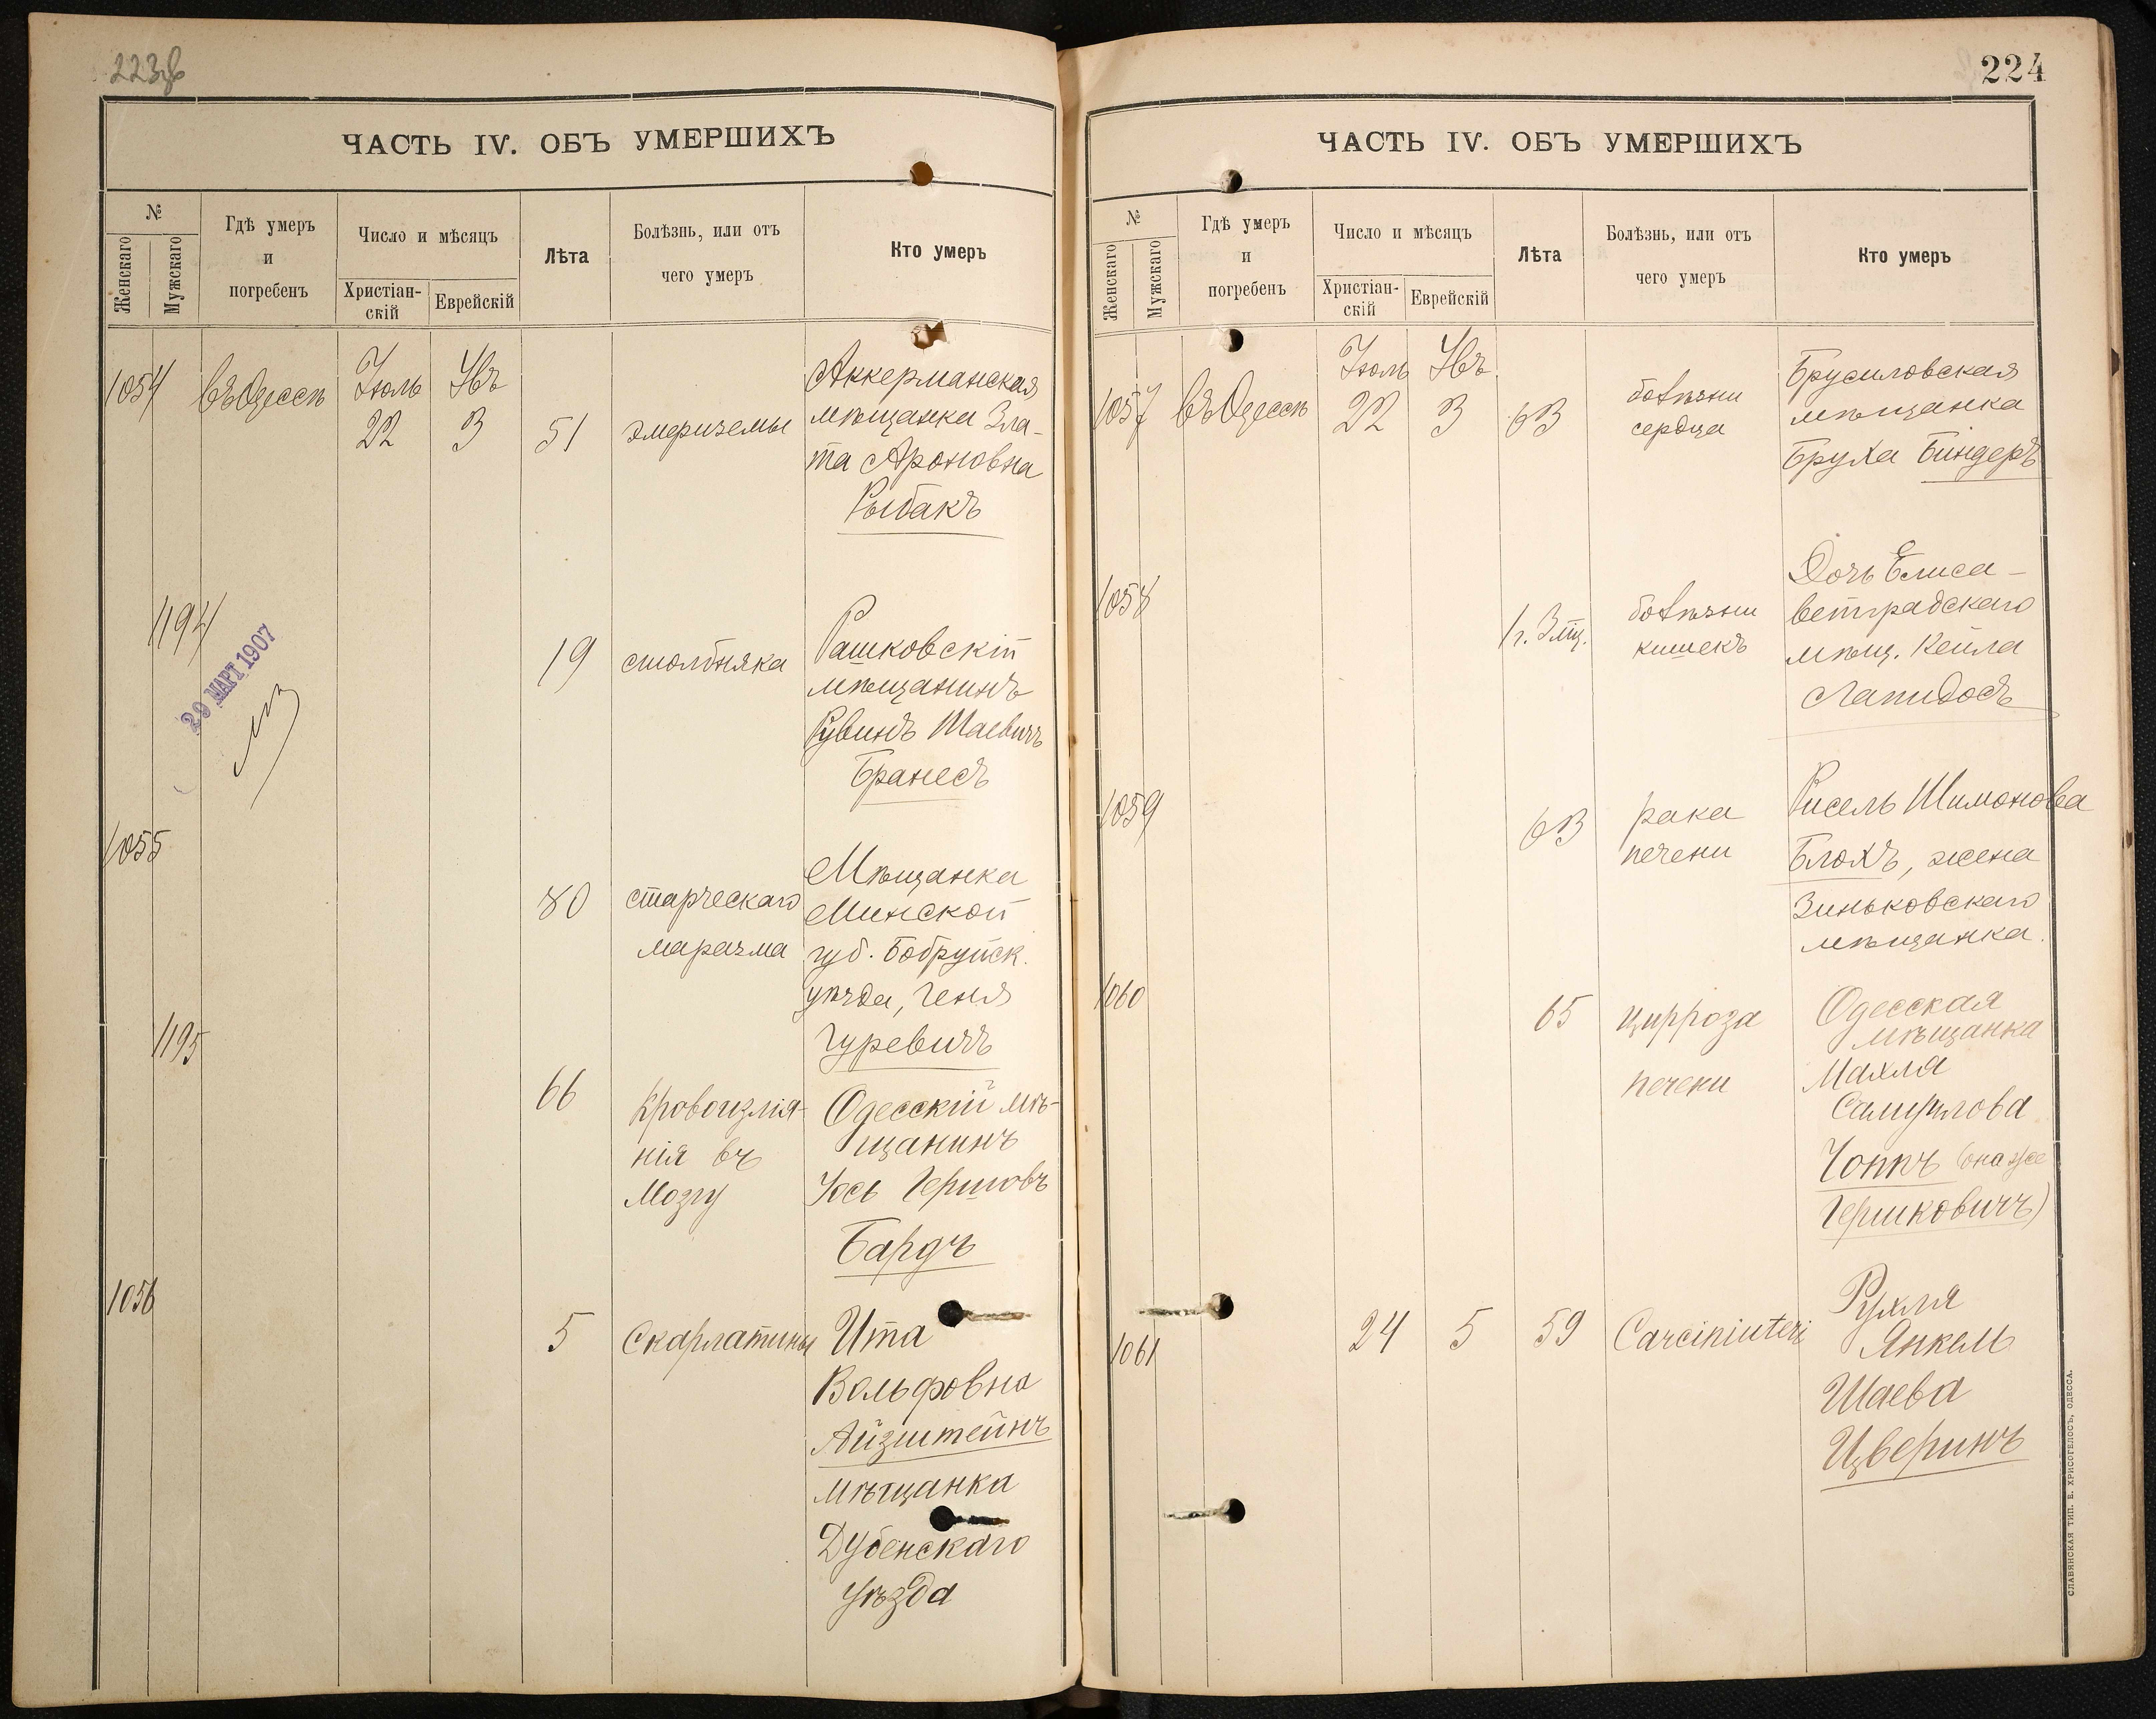 223об
ЧАСТЬ IV. ОБЪ УМЕРШИХЪ
№
Женскаго
Мужскаго
Гдѣ умеръ
и
погребенъ
Число и мѣсяцъ
Христіан-
скій
Еврейскій
Лѣта
Болѣзнь, или отъ
чего умеръ
Кто умеръ
1054
въ Одессѣ
Іюль
22
Ювъ
3
51
эмфиземы
Аккерманская
мѣщанка Зла-
та Ароновна
Рыбакъ
1194
29 МАРТ. 1907
19
столбняка
Рашковскій
мѣщанинъ
Рувинъ Шаевичъ
Бранесъ
1055
80
старческаго
маразма
Мѣщанка
Минской
губ. Бобруйск.
уѣзда, Геня
Гуревичъ
1195
66
Кровоизлія-
нія въ
мозгу
Одесскій мѣ-
щанинъ
Іось Гершовъ
Бардъ
1056
5
Скарлатины
Ита
Вольфовна
Айзштейнъ
мѣщанка
Дубенскаго
уѣзда
224
ЧАСТЬ IV. ОБЪ УМЕРШИХЪ
№
Женскаго
Мужскаго
Гдѣ умеръ
и
погребенъ
Число и мѣсяцъ
Христіан-
скій
Еврейскій
Лѣта
Болѣзнь, или отъ
чего умеръ
Кто умеръ
1057
въ Одессѣ
Іюль
22
Ювъ
3
63
болѣзни
сердца
Брусиловская
мѣщанка
Бруха Биндеръ
1058
1 г. 3 мц.
болѣзни
кишекъ
Дочь Елиса-
ветградскаго
мѣщ. Кейла
Лапидосъ
1059
63
рака
печени
Рисель Шимонова
Блохъ, жена
Зиньковскаго
мѣщанка.
1060
65
цирроза
печени
Одесская
мѣщанка
Махля
Самуилова
Чоппъ (она же
Гершковичъ)
1061
24
5
59
Carciniuteri
Рухля
Янкель
Шаева
Цверинъ
СЛАВЯНСКАЯ ТИП. Е. ХРИСОГЕЛОСЪ, ОДЕССА.